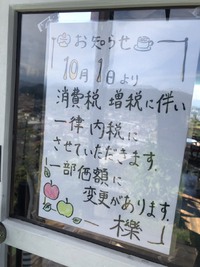 お知らせ
10月1日より
消費税 増税に伴い
一律 内税に
させていただきます。
一部価額に
変更があります。
檪